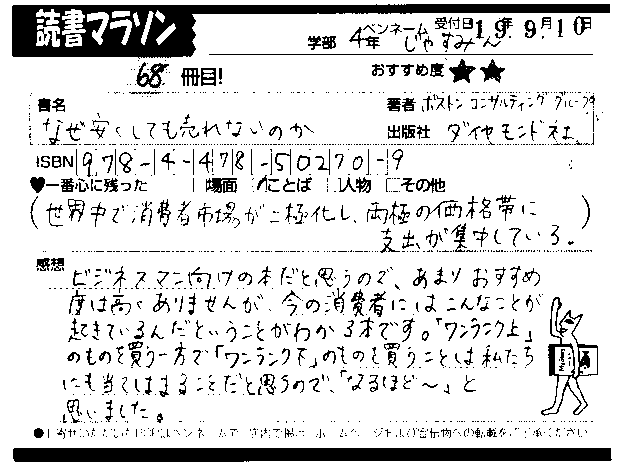 読書マラソン
学部 4年 ペンネーム じゃすみん 受付日 19年 9月10日
68 冊目! おすすめ度 ★★
書名 著者 ボストン コンサルティング グループ
なぜ安くしても売れないのか 出版社 ダイヤモンド社
ISBN 978-4-478-50270-9
♥一番心に残った □場面 ☑ことば □人物 □その他
(世界中で消費者市場が二極化し、両極の価格帯に
支出が集中している。)
感想
ビジネスマン向けの本だと思うので、あまりおすすめ
度は高くありませんが、今の消費者にはこんなことが
起きているんだということがわかる本です。「ワンランク上」
のものを買う一方で「ワンランク下」のものを買うことは私たち
にも当てはまることだと思うので、「なるほど〜」と
思いました。